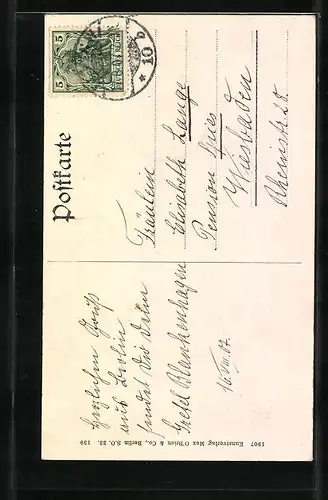 Postkarte
5 5
* 10 b
Herzlichen Gruß
aus Berlin
sendet Dir Deine
Gretel Blankenhagen
16.VII.07.
Fräulein
Elisabeth Lange
Pension
Wiesbaden
Rheinstr. 28
1907 Kunstverlag Max O'Brien & Co., Berlin S.O. 33. 139